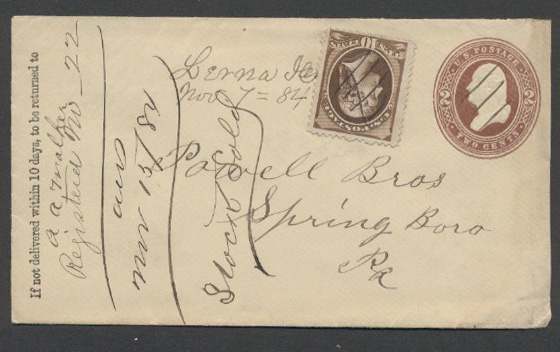 If not delivered within 10 days, to be returned to
a a walker
Registered No 22
ans
nov 15/84
Stock Sold
Lerna Ills
Nov 7 = 84
U.S. POSTAGE
10
U.S. POSTAGE
2 2
TWO CENTS
Powell Bros
Spring Boro
Pa